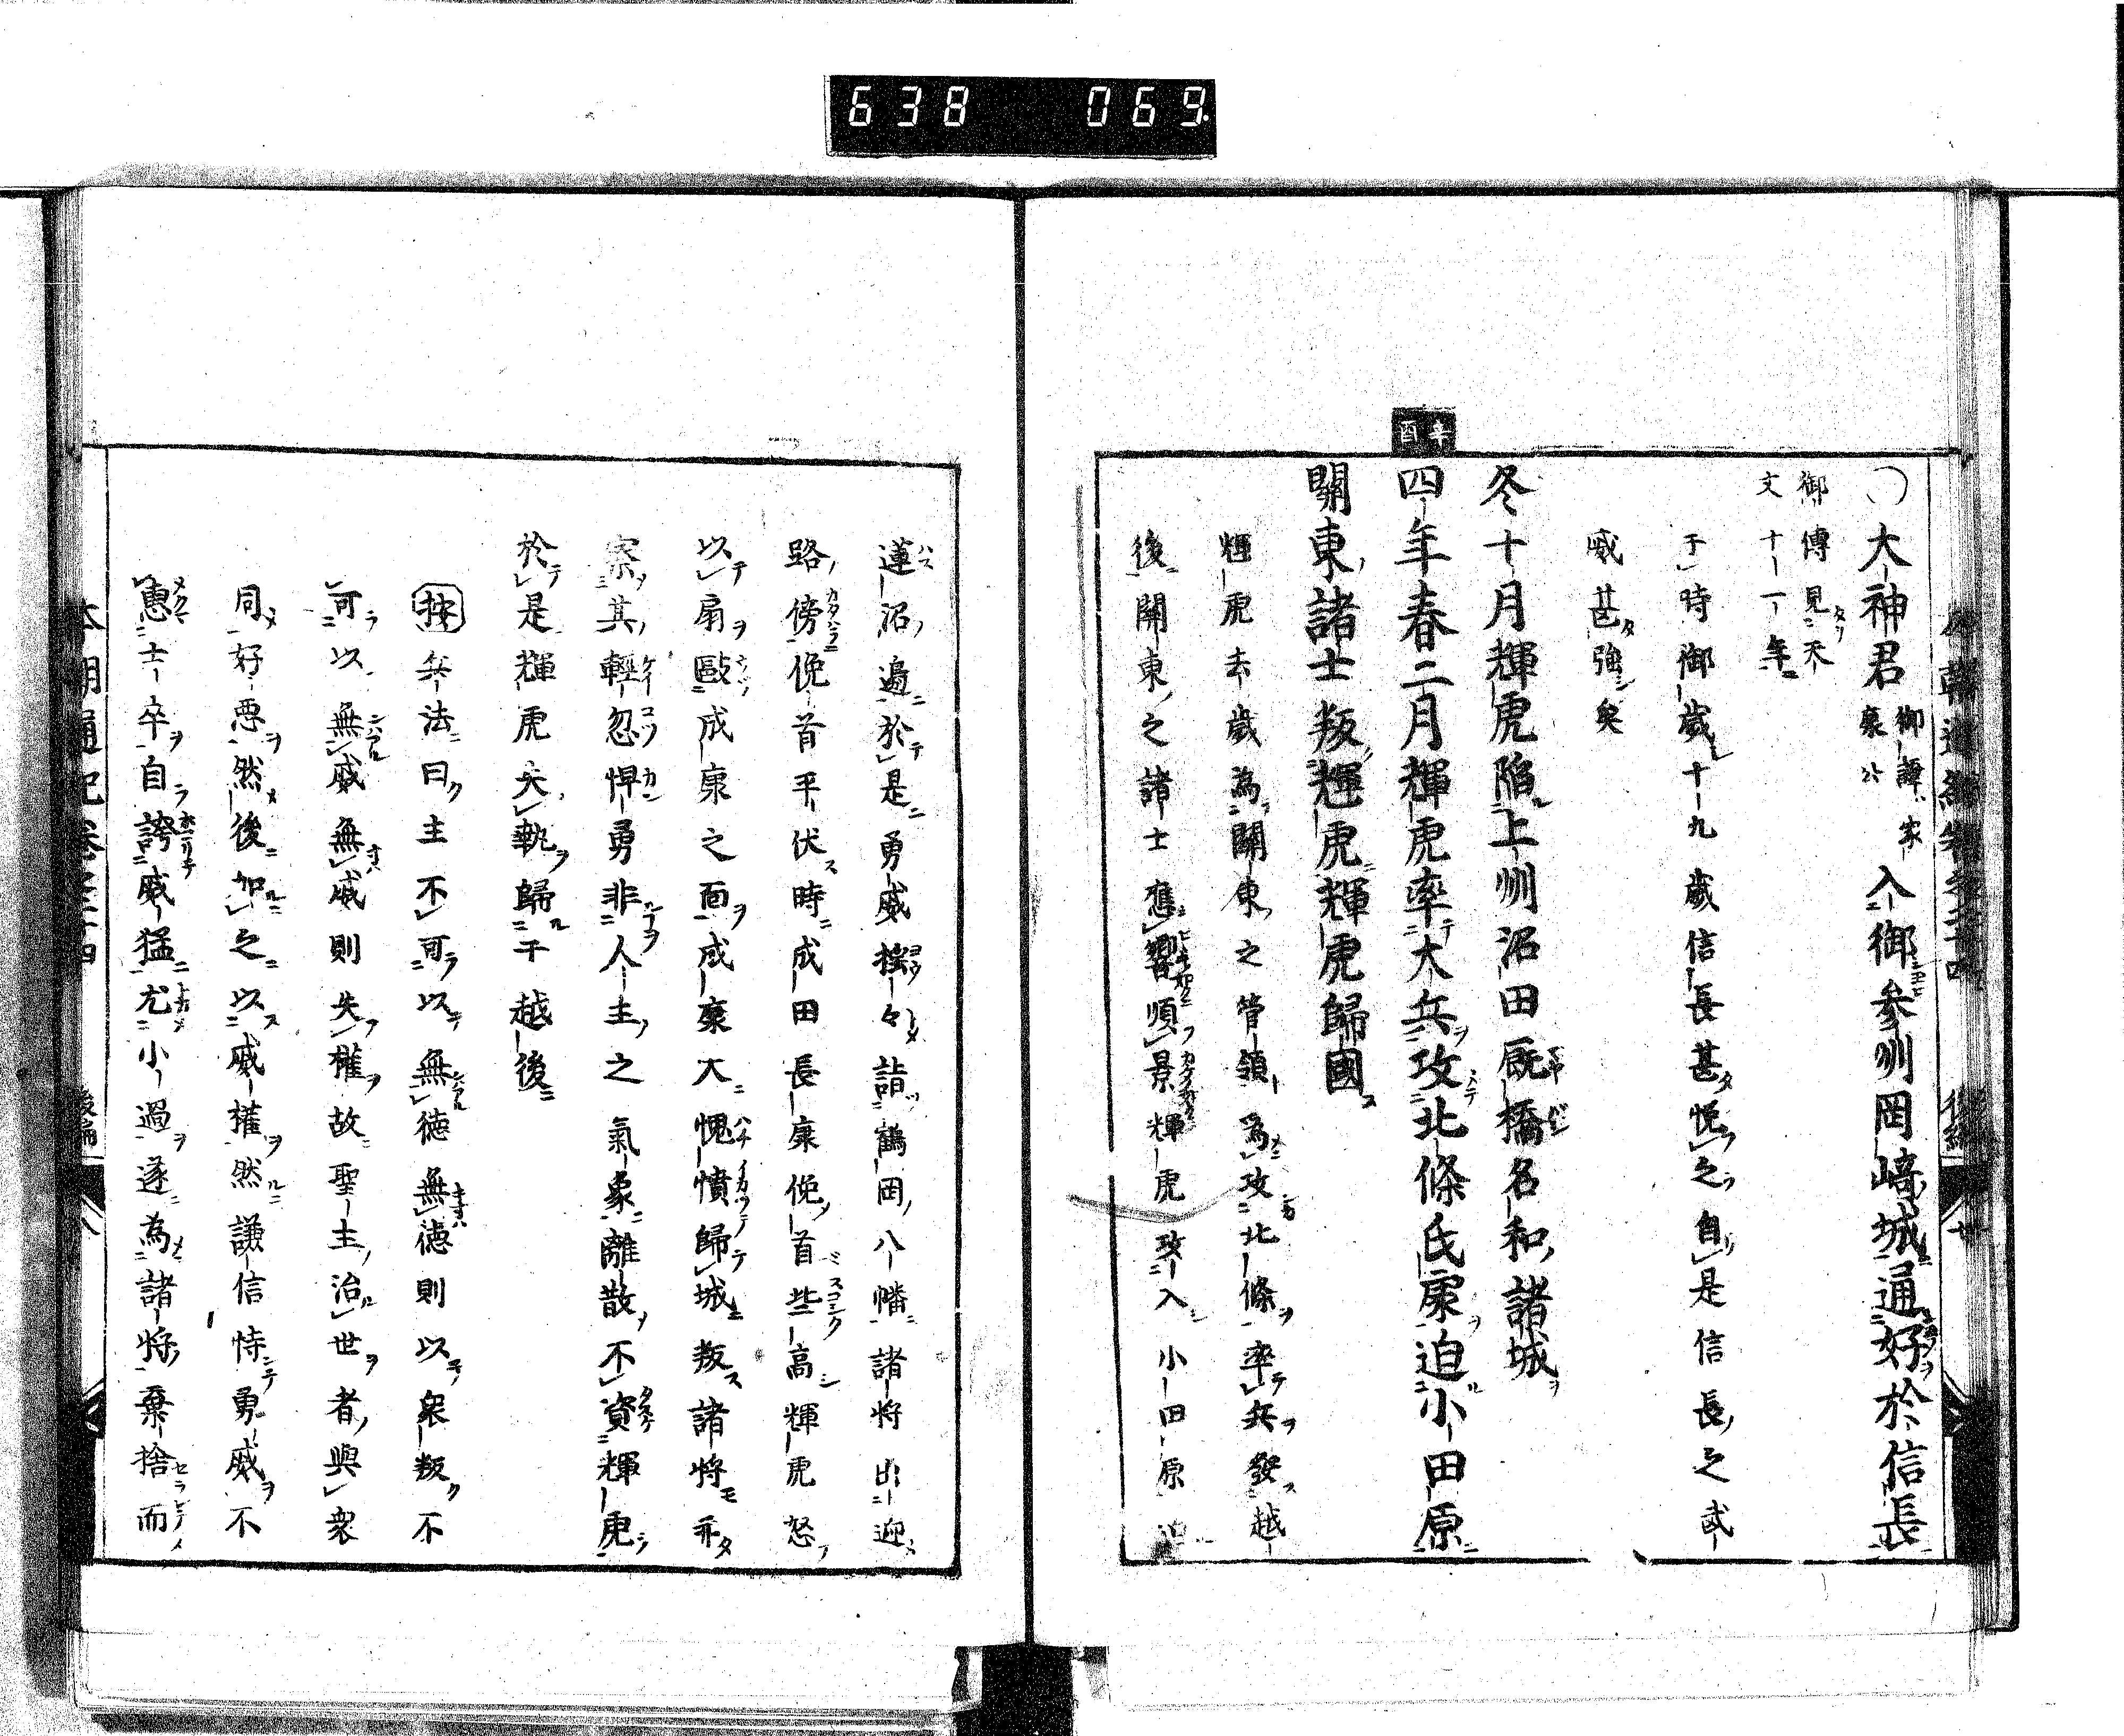 638 069
辛酉
〇大神君御諱家康公入御参州岡﨑城通好於信長
御傳見天
文十一年
于時御歳十九歳信長甚悦之自是信長之武
威甚強矣
冬十月輝虎陷上州沼田厩橋名和諸城
四年春二月輝虎率大兵攻北條氏康迫小田原
關東諸士叛輝虎輝虎歸國
輝虎去歳為關東之管領為攻北條率兵發越
後關東之諸士應響順景輝虎攻入小田原
蓮沼邉於是勇威揺々詣鶴岡八幡諸将出迎
路傍俛首平伏時成田長康俛首些高輝虎怒
以扇毆成康之面成康大愧憤歸城叛諸将亦
察其輕忽悍勇非人主之氣象離散不資輝虎
於是輝虎失執歸于越後
按兵法曰主不可以無徳無徳則以衆叛不
可以無威無威則失權故聖主治世者與衆
同好悪然後加之以威權然謙信恃勇威不
惠士卒自誇威猛尤小過遂為諸将棄捨而
本朝通紀巻之二十四 後編